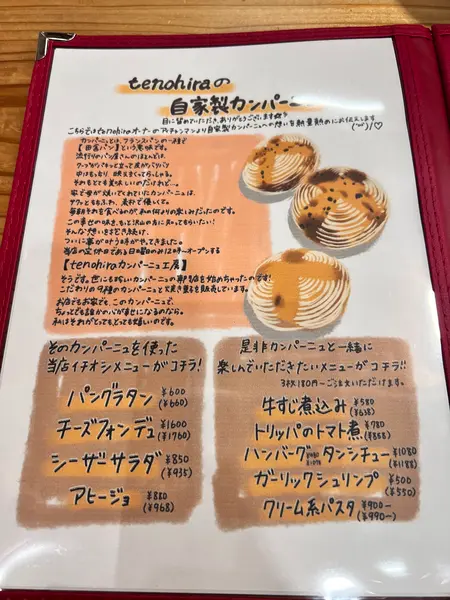 tenohiraの
自家製カンパーニュ
目に留めていただき、ありがとうございます☆彡
こちらではtenohiraオーナーのアッチャンマンより自家製カンパーニュへの想いを熱量熱めにお伝えします
カンパーニュとは、フランスパンの一種で
【田舎パン】という意味です。
流行りのパン屋さんのほとんどは、
クープがバキンと立って皮がバリバリ
中はもっちり 映え全くらっしゃる。
それもとても美味しいのだけれど…。
家で母が焼いてくれていたカンパーニュは、
サクッともふわふわ、素朴で優しくて。
毎朝それを食べるのが、あの何よりの楽しみだったのです。
この幸せの味を、もっと沢山の方に知ってもらいたい!
そんな想いをまとい続け、
ついに夢が叶う時がやってきました。
当店の定休日である日曜日のみ12時〜オープンする
【tenohiraカンパーニュ工房】
そうです。世にも珍しいカンパーニュの専門店を始めちゃったのです!
こだわりの9種のカンパーニュと焼き菓子を販売しています。
お店でもお家でも、このカンパーニュで、
ちょっとでも誰かの心が幸せになるのなら。
私はそれがとってもとっても嬉しいのです。
そのカンパーニュを使った
当店イチオシメニューがコチラ!
パングラタン ¥600
(¥660)
チーズフォンデュ ¥1600
(¥1760)
シーザーサラダ ¥850
(¥935)
アヒージョ ¥880
(¥968)
是非カンパーニュと一緒に
楽しんでいただきたいメニューがコチラ!!
3枚180円〜ご注文いただけます。
牛すじ煮込み ¥580
(¥638)
トリッパのトマト煮 ¥780
(¥858)
ハンバーグタンシチュー ¥1080
(¥1188)
ガーリックシュリンプ ¥500
(¥550)
クリーム系パスタ ¥900〜
(¥990〜)